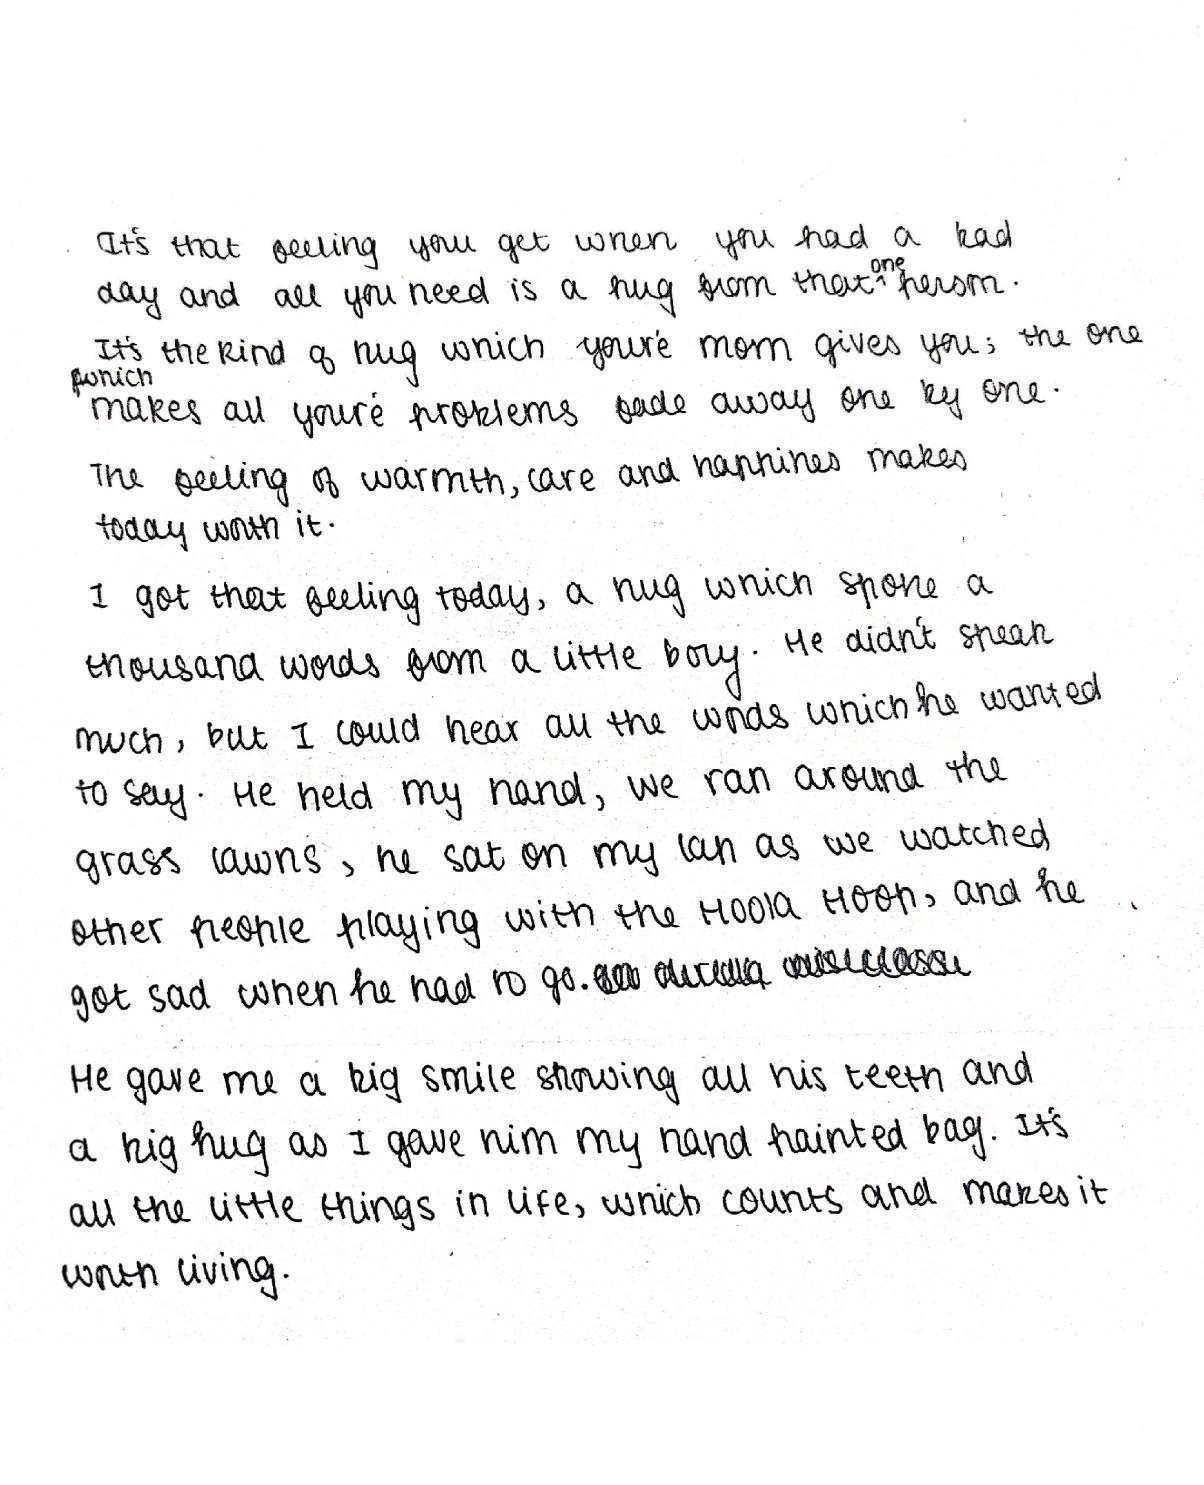 It's that feeling you get when you had a bad
day and all you need is a hug from that one person.
It's the kind of hug which you're mom gives you; the one
which
makes all you're problems fade away one by one.
The feeling of warmth, care and happines makes
today worth it.
I got that feeling today, a hug which spoke a
thousand words from a little boy. He didn't speak
much, but I could hear all the words which he wanted
to say. He held my hand, we ran around the
grass lawns, he sat on my lap as we watched
other people playing with the Hoola Hoop, and he
got sad when he had to go.
He gave me a big smile showing all his teeth and
a big hug as I gave him my hand painted bag. It's
all the little things in life, which counts and makes it
worth living.